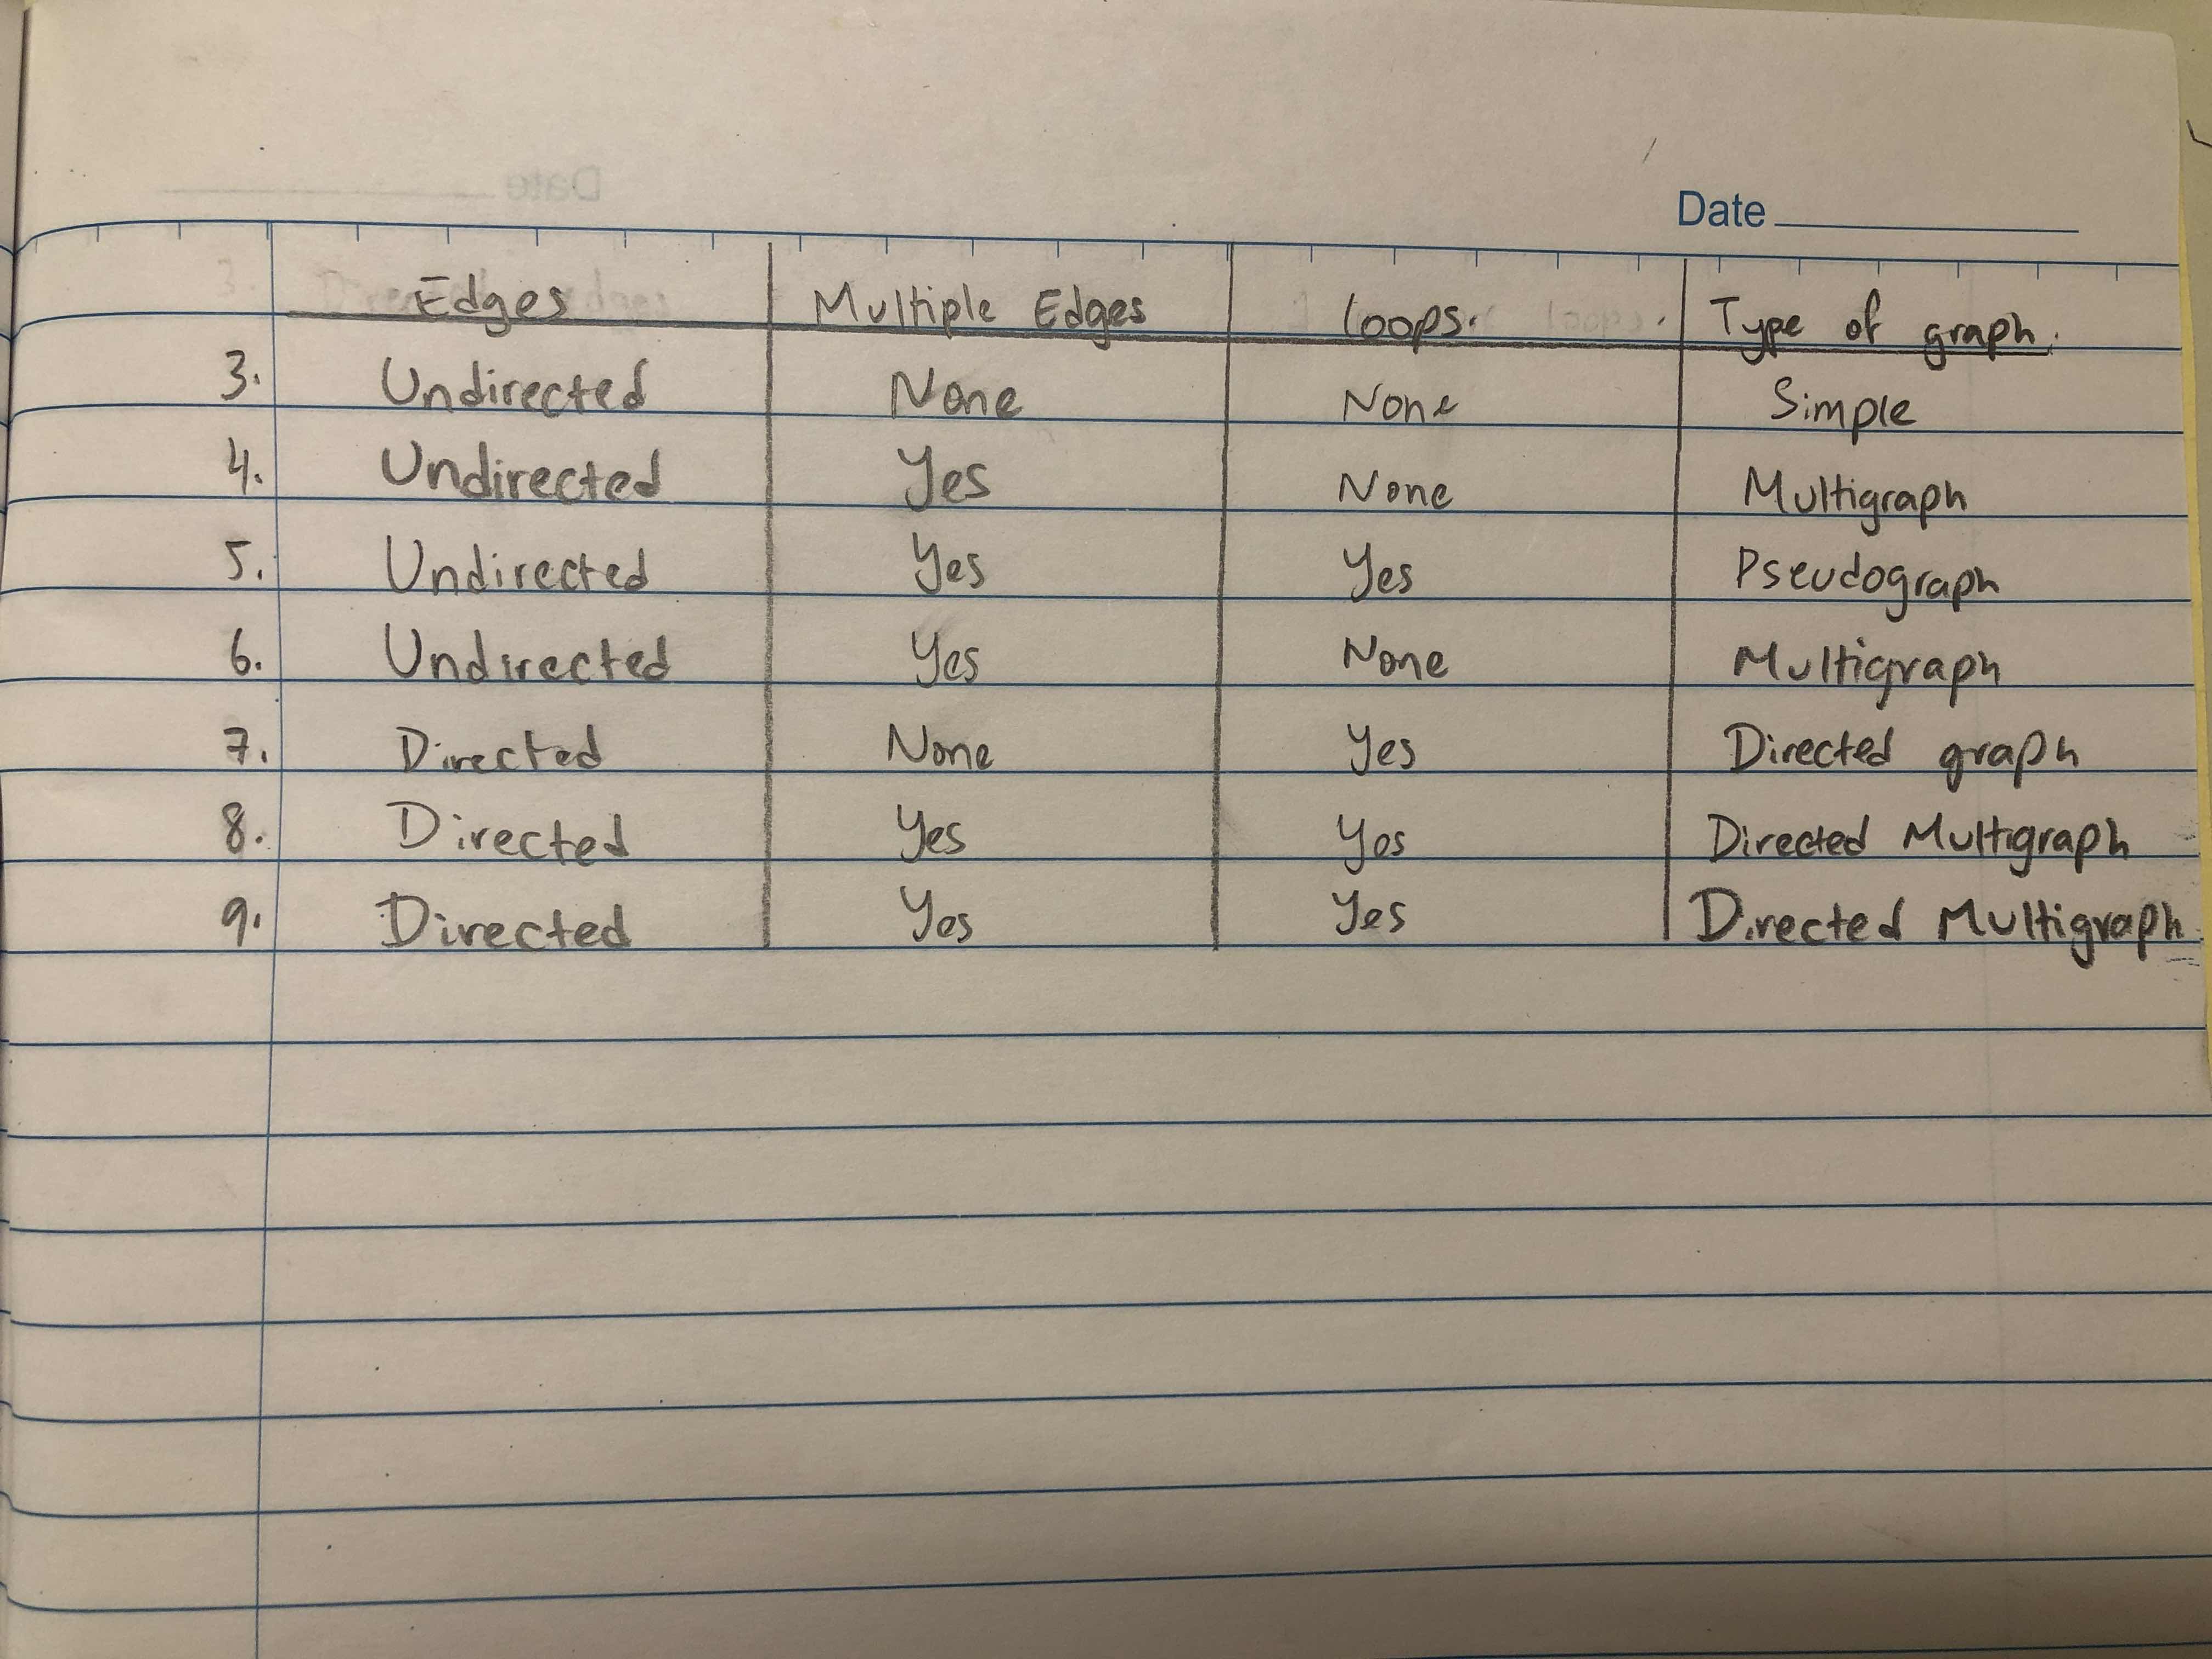 Date
Edges Multiple Edges loops. Type of graph.
3. Undirected None None Simple
4. Undirected Yes None Multigraph
5. Undirected Yes Yes Pseudograph
6. Undirected Yes None Multigraph
7. Directed None Yes Directed graph
8. Directed Yes Yes Directed Multigraph
9. Directed Yes Yes Directed Multigraph